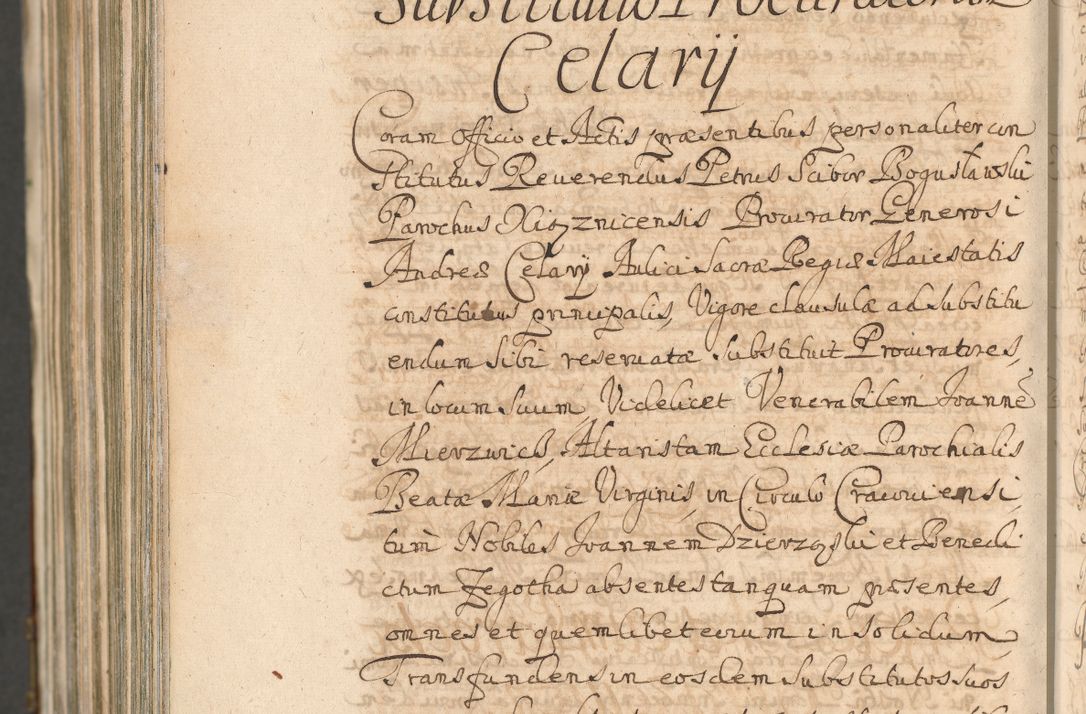 Substitutio Procuratorum
Celarij
Coram Officio et Actis præsentibus personaliter con
stitutus Reuerendus Petrus Scibor Bogusławski
Parochus Xiąznicensis Procurator Generosi
Andreæ Celarij Aulici Sacræ Regiæ Maiestatis
constitutus principalis, Vigore clausulæ ad substitu
endum sibi reseruatæ substituit Procuratores,
in locum suum, Videlicet Venerabilem Joannē
Mierzwicķ, Altaristam Ecclesiæ Parochialis
Beatæ Mariæ Virginis, in Circulo Cracouiensi,
tum Nobiles Joannem Dzierzą̨ski et Benedi
ctum Zegotha absentes tanquam præsentes,
omnes et quemlibet eorum in solidum
Transfundens in eosdem substitutos suos